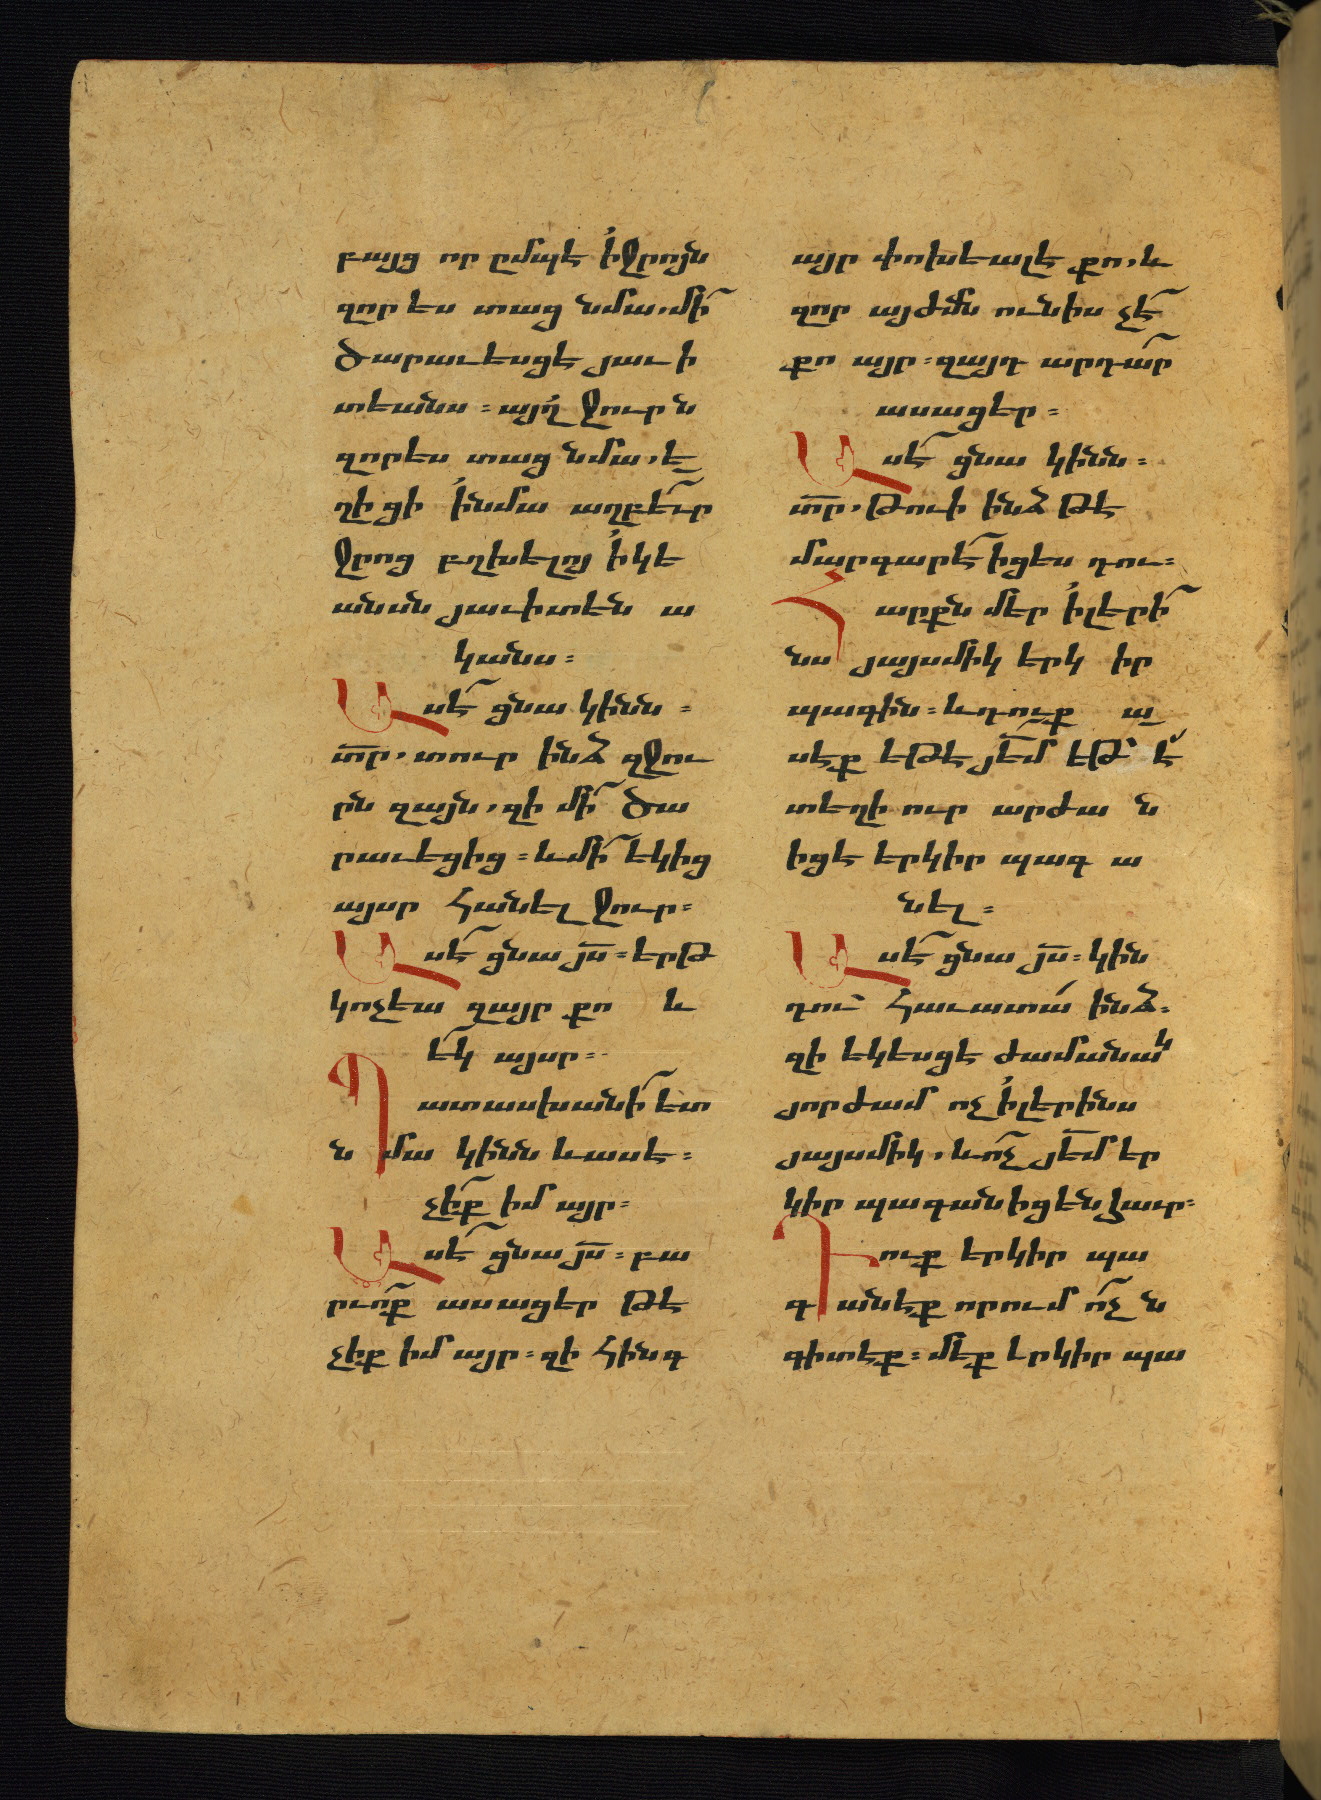 բայց որ ըմպէ ի ջրոյն
զոր ես տաց նմա, մի՛
ծարաւեսցէ յաւի
տեանս։ այղ ջուրն
զոր ես տաց նմա, ե
ղիցի ի նմա աղբեւր
ջրոց բղխելոյ ի կե
անսն յաւիտեն ա
կանս։
Ասէ ցնա կինն։
տր, տուր ինձ զջու
րն զայն, զի մի՛ ծա
րաւեցից։ և մի՛ եկից
այսր հանել ջուր։
Ասէ ցնա յս։ երթ
կոչեա զայր քո և
ե՛կ այսր։
Պատասխանի ետ
նմա կինն և ասէ։
չիք իմ այր։
Ասէ ցնա յս։ բա
րւոք ասացեր թէ
չիք իմ այր։ զի հինգ
այր փոխեալ է քո, և
զոր այժմն ունիս չէ՛
քո այր։ զայդ արդար
ասացեր։
Ասէ ցնա կինն։
տր, թուի ինձ թէ
մարգարէ իցես դու։
Հարքն մեր ի լերի
նս յայսմիկ երկ իր
պագին։ և դուք ա
սէք եթէ յեմ եթ է՛
տեղի ուր արժա ն
իցէ երկիր պագ ա
նել։
Ասէ ցնա յս։ կին
դու հաւատա՛ ինձ։
զի եկեսցէ ժամանակ
յորժամ ոչ ի լերինս
յայսմիկ, և ոչ յեմ եր
կիր պագանիցեն հաւր։
Դուք երկիր պա
գանէք որում ոչն
գիտէք։ մեք երկիր պա